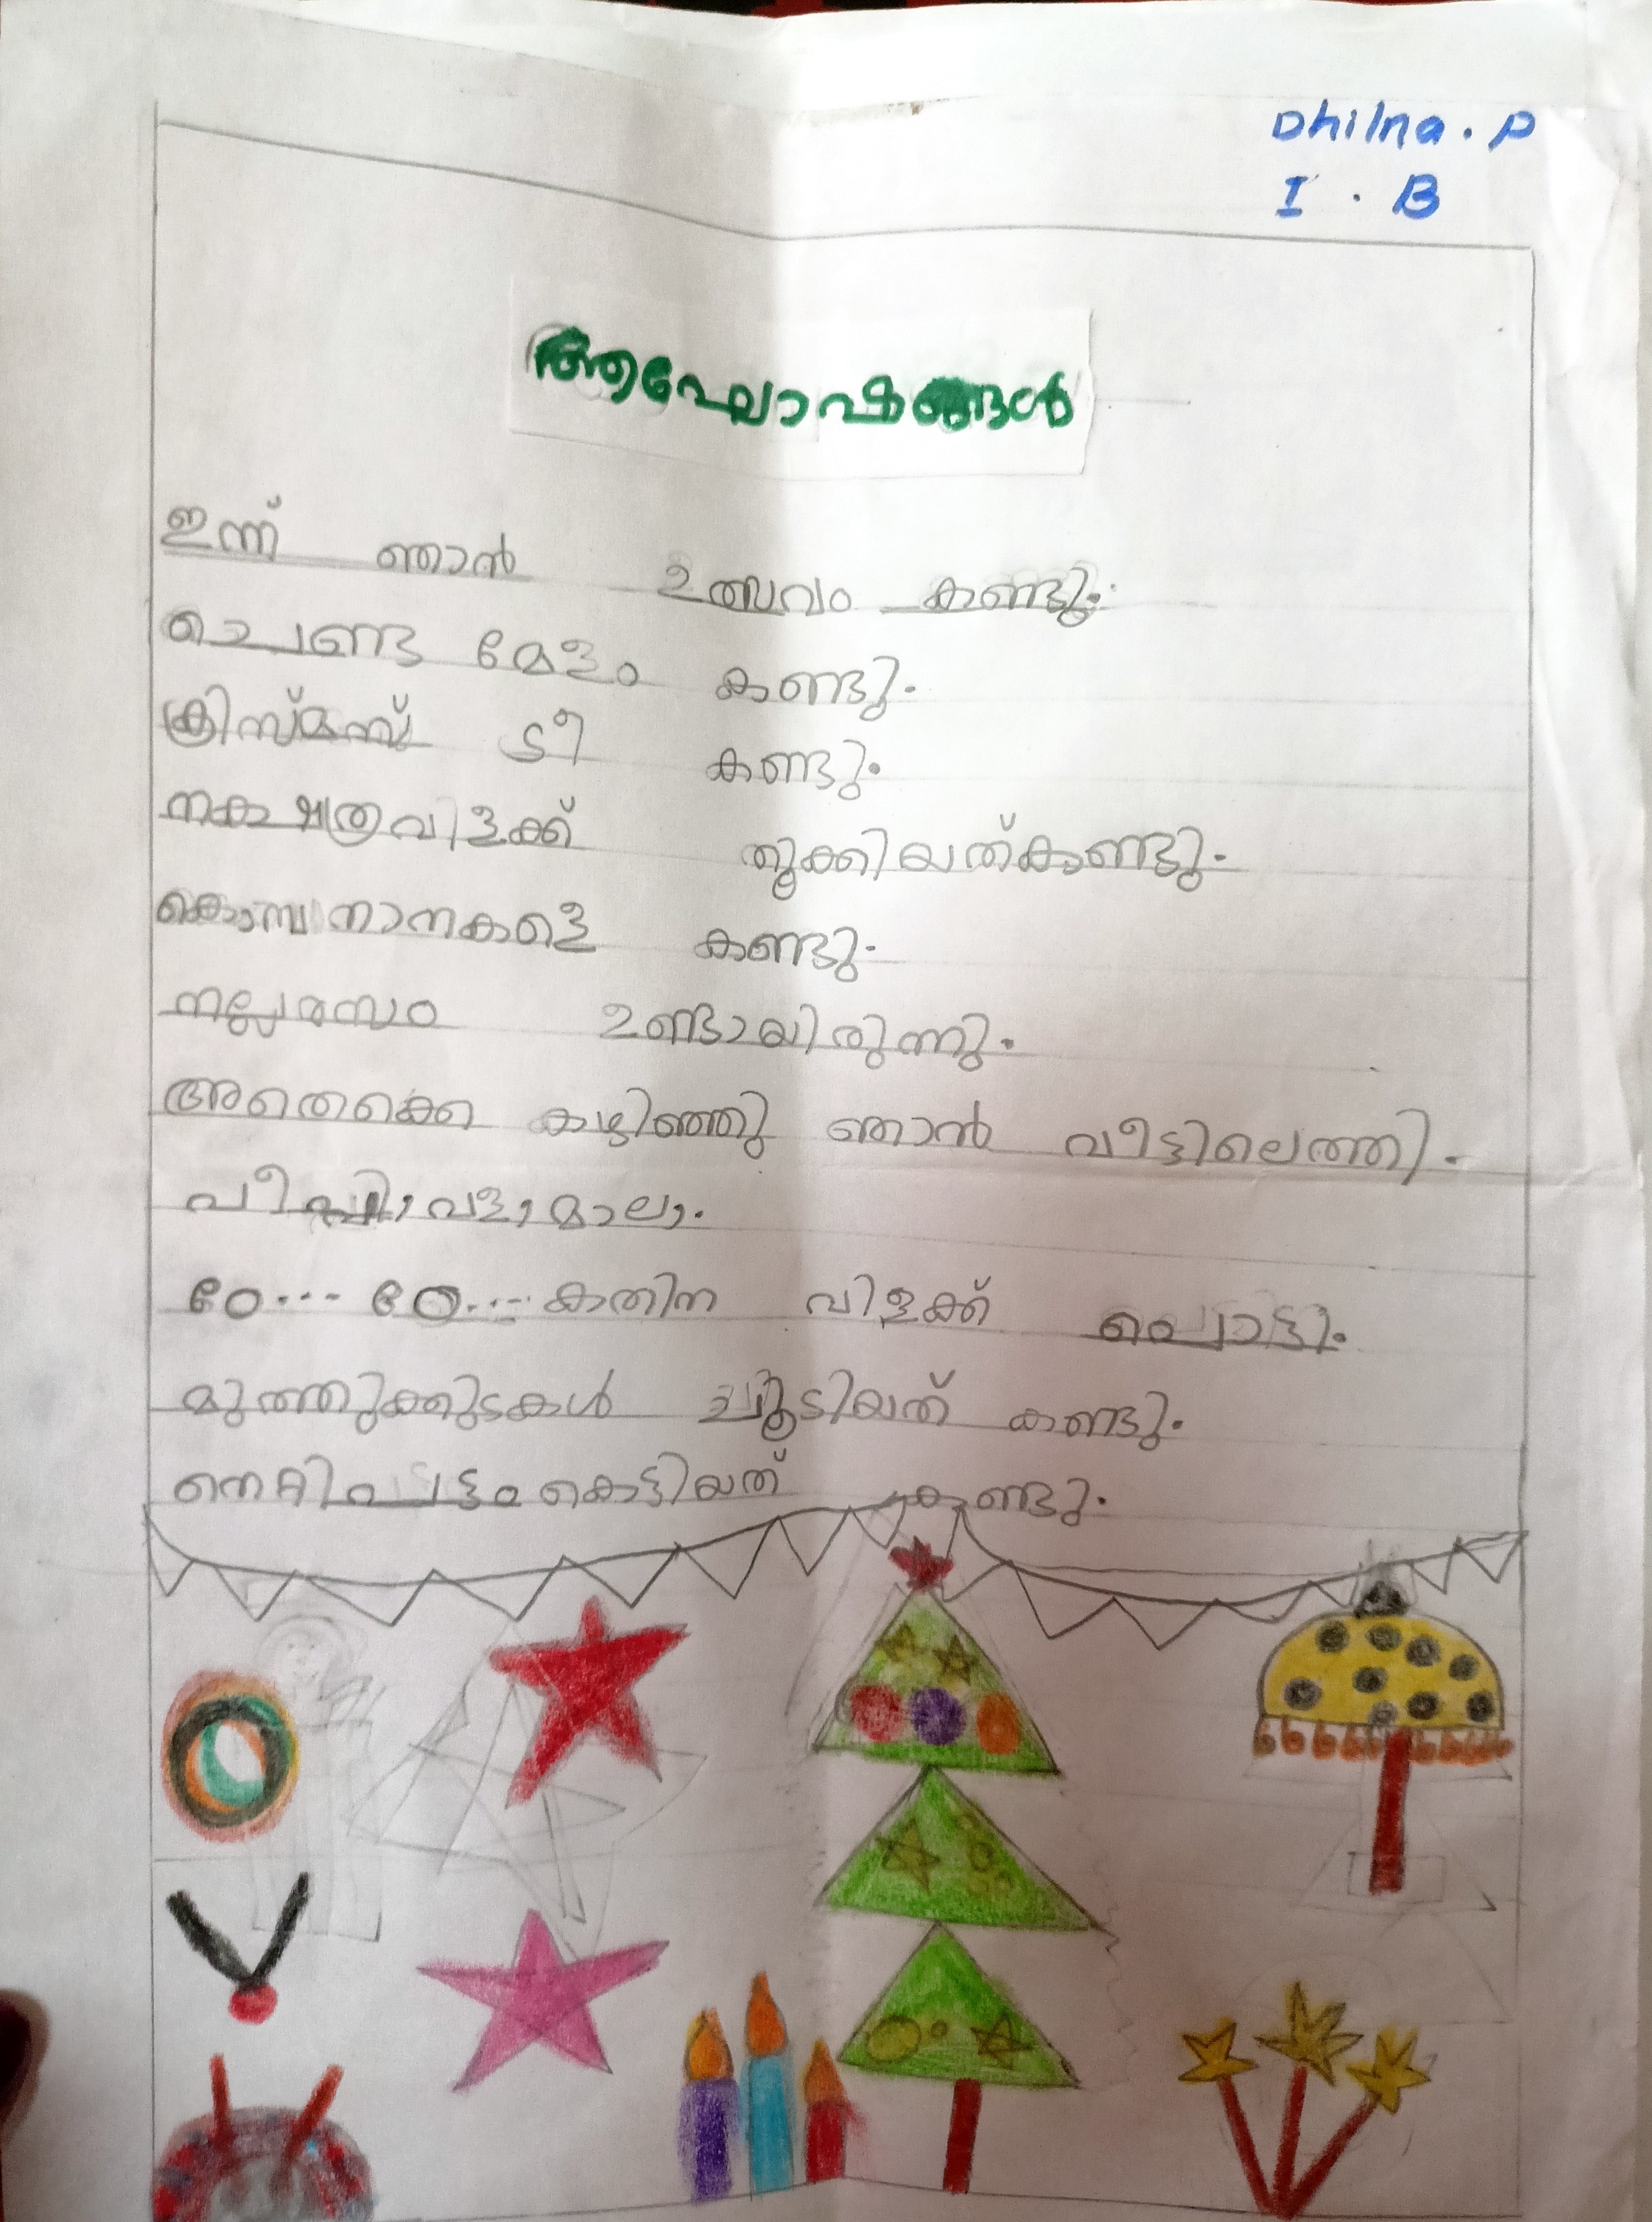 Dhilna. P
I. B
ആഘോഷങ്ങൾ
ഇന്ന് ഞാൻ ഉത്സവം കണ്ടു.
ചെണ്ട മേളം കണ്ടു.
ക്രിസ്മസ് ട്രീ കണ്ടു.
നക്ഷത്രവിളക്ക് തൂക്കിയത്കണ്ടു.
കൊമ്പനാനകളെ കണ്ടു.
നല്ലരസം ഉണ്ടായിരുന്നു.
അതൊക്കെ കഴിഞ്ഞു ഞാൻ വീട്ടിലെത്തി.
പീപ്പി, വള, മാല.
ഠേ... ഠേ... കതിന വിളക്ക് പൊട്ടി.
മുത്തുക്കുടകൾ ചൂടിയത് കണ്ടു.
നെറ്റിപട്ടം കെട്ടിയത് കണ്ടു.